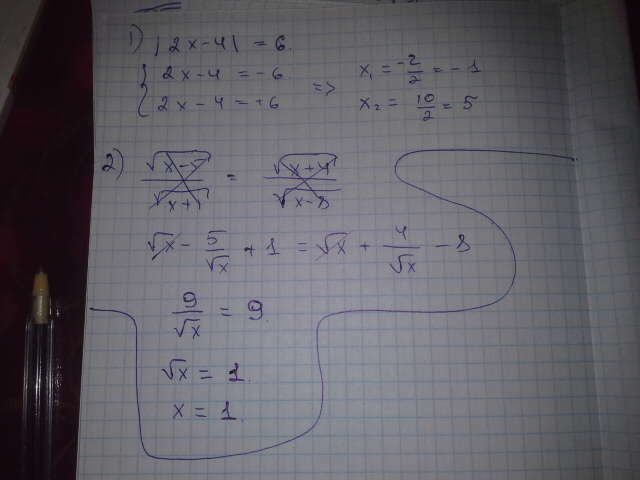 1) |2x-4| = 6.
{ 2x-4 = -6
2x-4 = +6
=> x₁ = -2/2 = -1
x₂ = 10/2 = 5
2)
=
√x - 5/√x + 1 = √x + 4/√x - 8
9/√x = 9
√x = 1.
x = 1.